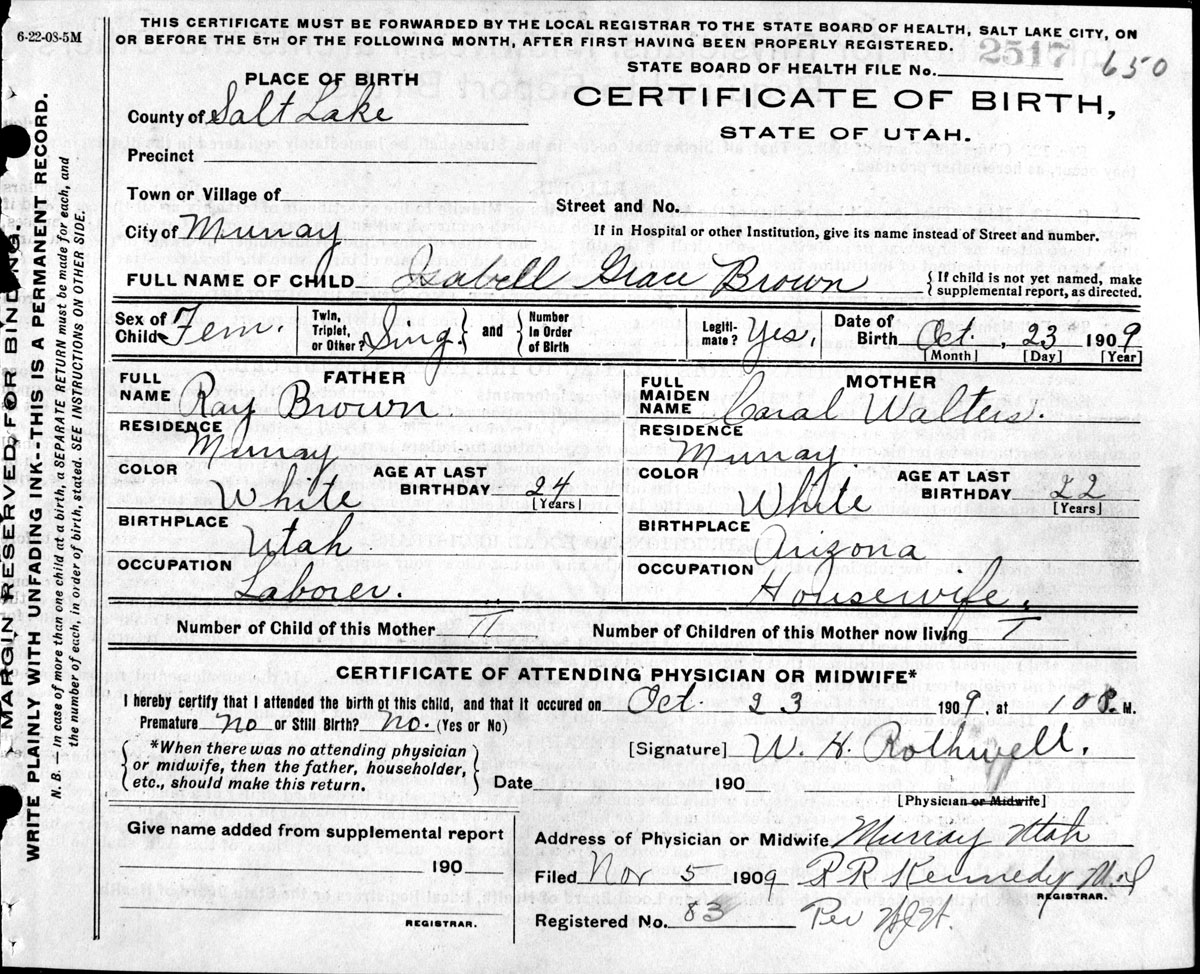 6-22-08-5M
THIS CERTIFICATE MUST BE FORWARDED BY THE LOCAL REGISTRAR TO THE STATE BOARD OF HEALTH, SALT LAKE CITY, ON
OR BEFORE THE 5TH OF THE FOLLOWING MONTH, AFTER FIRST HAVING BEEN PROPERLY REGISTERED.
2517 650
STATE BOARD OF HEALTH FILE No.
CERTIFICATE OF BIRTH,
STATE OF UTAH.
PLACE OF BIRTH
County of Salt Lake
Precinct
Town or Village of
Street and No.
City of Murray
If in Hospital or other Institution, give its name instead of Street and number.
FULL NAME OF CHILD Isabell Grace Brown {If child is not yet named, make
supplemental report, as directed.
Sex of Child Fem.
Twin, Triplet, or Other? Sing. and Number in Order of Birth
Legiti-mate? Yes.
Date of Birth Oct. 23 1909
[Month] [Day] [Year]
FATHER
FULL NAME Ray Brown
RESIDENCE Murray
COLOR White AGE AT LAST BIRTHDAY 24 [Years]
BIRTHPLACE Utah
OCCUPATION Laborer.
MOTHER
FULL MAIDEN NAME Coral Walters.
RESIDENCE Murray
COLOR White AGE AT LAST BIRTHDAY 22 [Years]
BIRTHPLACE Arizona
OCCUPATION Housewife.
Number of Child of this Mother II Number of Children of this Mother now living I
CERTIFICATE OF ATTENDING PHYSICIAN OR MIDWIFE*
I hereby certify that I attended the birth of this child, and that it occured on Oct. 23 1909, at 10 P. M.
Premature No or Still Birth? No. (Yes or No)
{*When there was no attending physician
or midwife, then the father, householder,
etc., should make this return.}
[Signature] W. H. Rothwell.
Date 190
[Physician or Midwife]
Give name added from supplemental report
190
REGISTRAR.
Address of Physician or Midwife Murray Utah
Filed Nov 5 1909 P R Kennedy
REGISTRAR.
Registered No. 83 Per
MARGIN RESERVED FOR BINDING.
WRITE PLAINLY WITH UNFADING INK--THIS IS A PERMANENT RECORD.
N. B. In case of more than one child at a birth, a SEPARATE RETURN must be made for each, and
the number of each, in order of birth, stated. SEE INSTRUCTIONS ON OTHER SIDE.